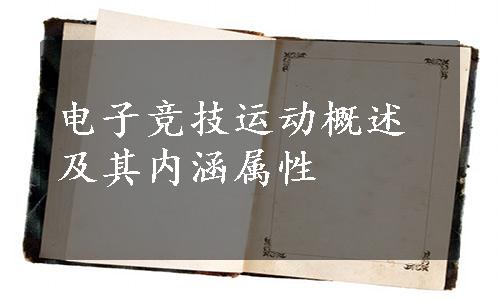 电子竞技运动概述
及其内涵属性